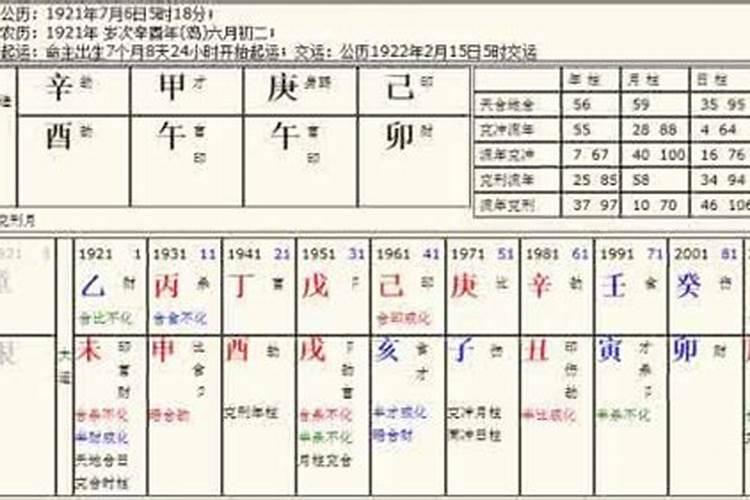 公历：1921年7月6日5时18分；
农历：1921年 岁次辛酉年(鸡)六月初二；
起运：命主出生7个月8天24小时开始起运；交运：公历1922年2月15日5时交运
辛 劫 甲 才 庚 己 印
酉 劫 午 官 印 午 官 印 卯 财
年柱 月柱 日柱
天合地合 56 59 35 95
克冲流年 55 28 88 4 64
流年克冲 7 67 40 100 16 76
克刑流年 25 85 58 34 94
流年克刑 37 97 10 70 46 106
克刑月
1921 1 1931 11 1941 21 1951 31 1961 41 1971 51 1981 61 1991 71 2001 81
乙 财 丙 杀 丁 官 戊 卩 己 印 庚 比 辛 劫 壬 食 癸 伤
合比不化 合食不化 合印成化
大运
未 印 官 财 申 比 食 卩 酉 劫 戌 卩 劫 官 亥 食 才 子 伤 丑 印 伤 劫 寅 才 杀 卩 卯 财
合杀不化 暗合劫 克刑年柱 合杀不化 半才成化 克冲月柱 半比成化 半杀不化
半财成化 半杀不化 暗合财 冲日柱
天地合日 月柱交合
交合时柱